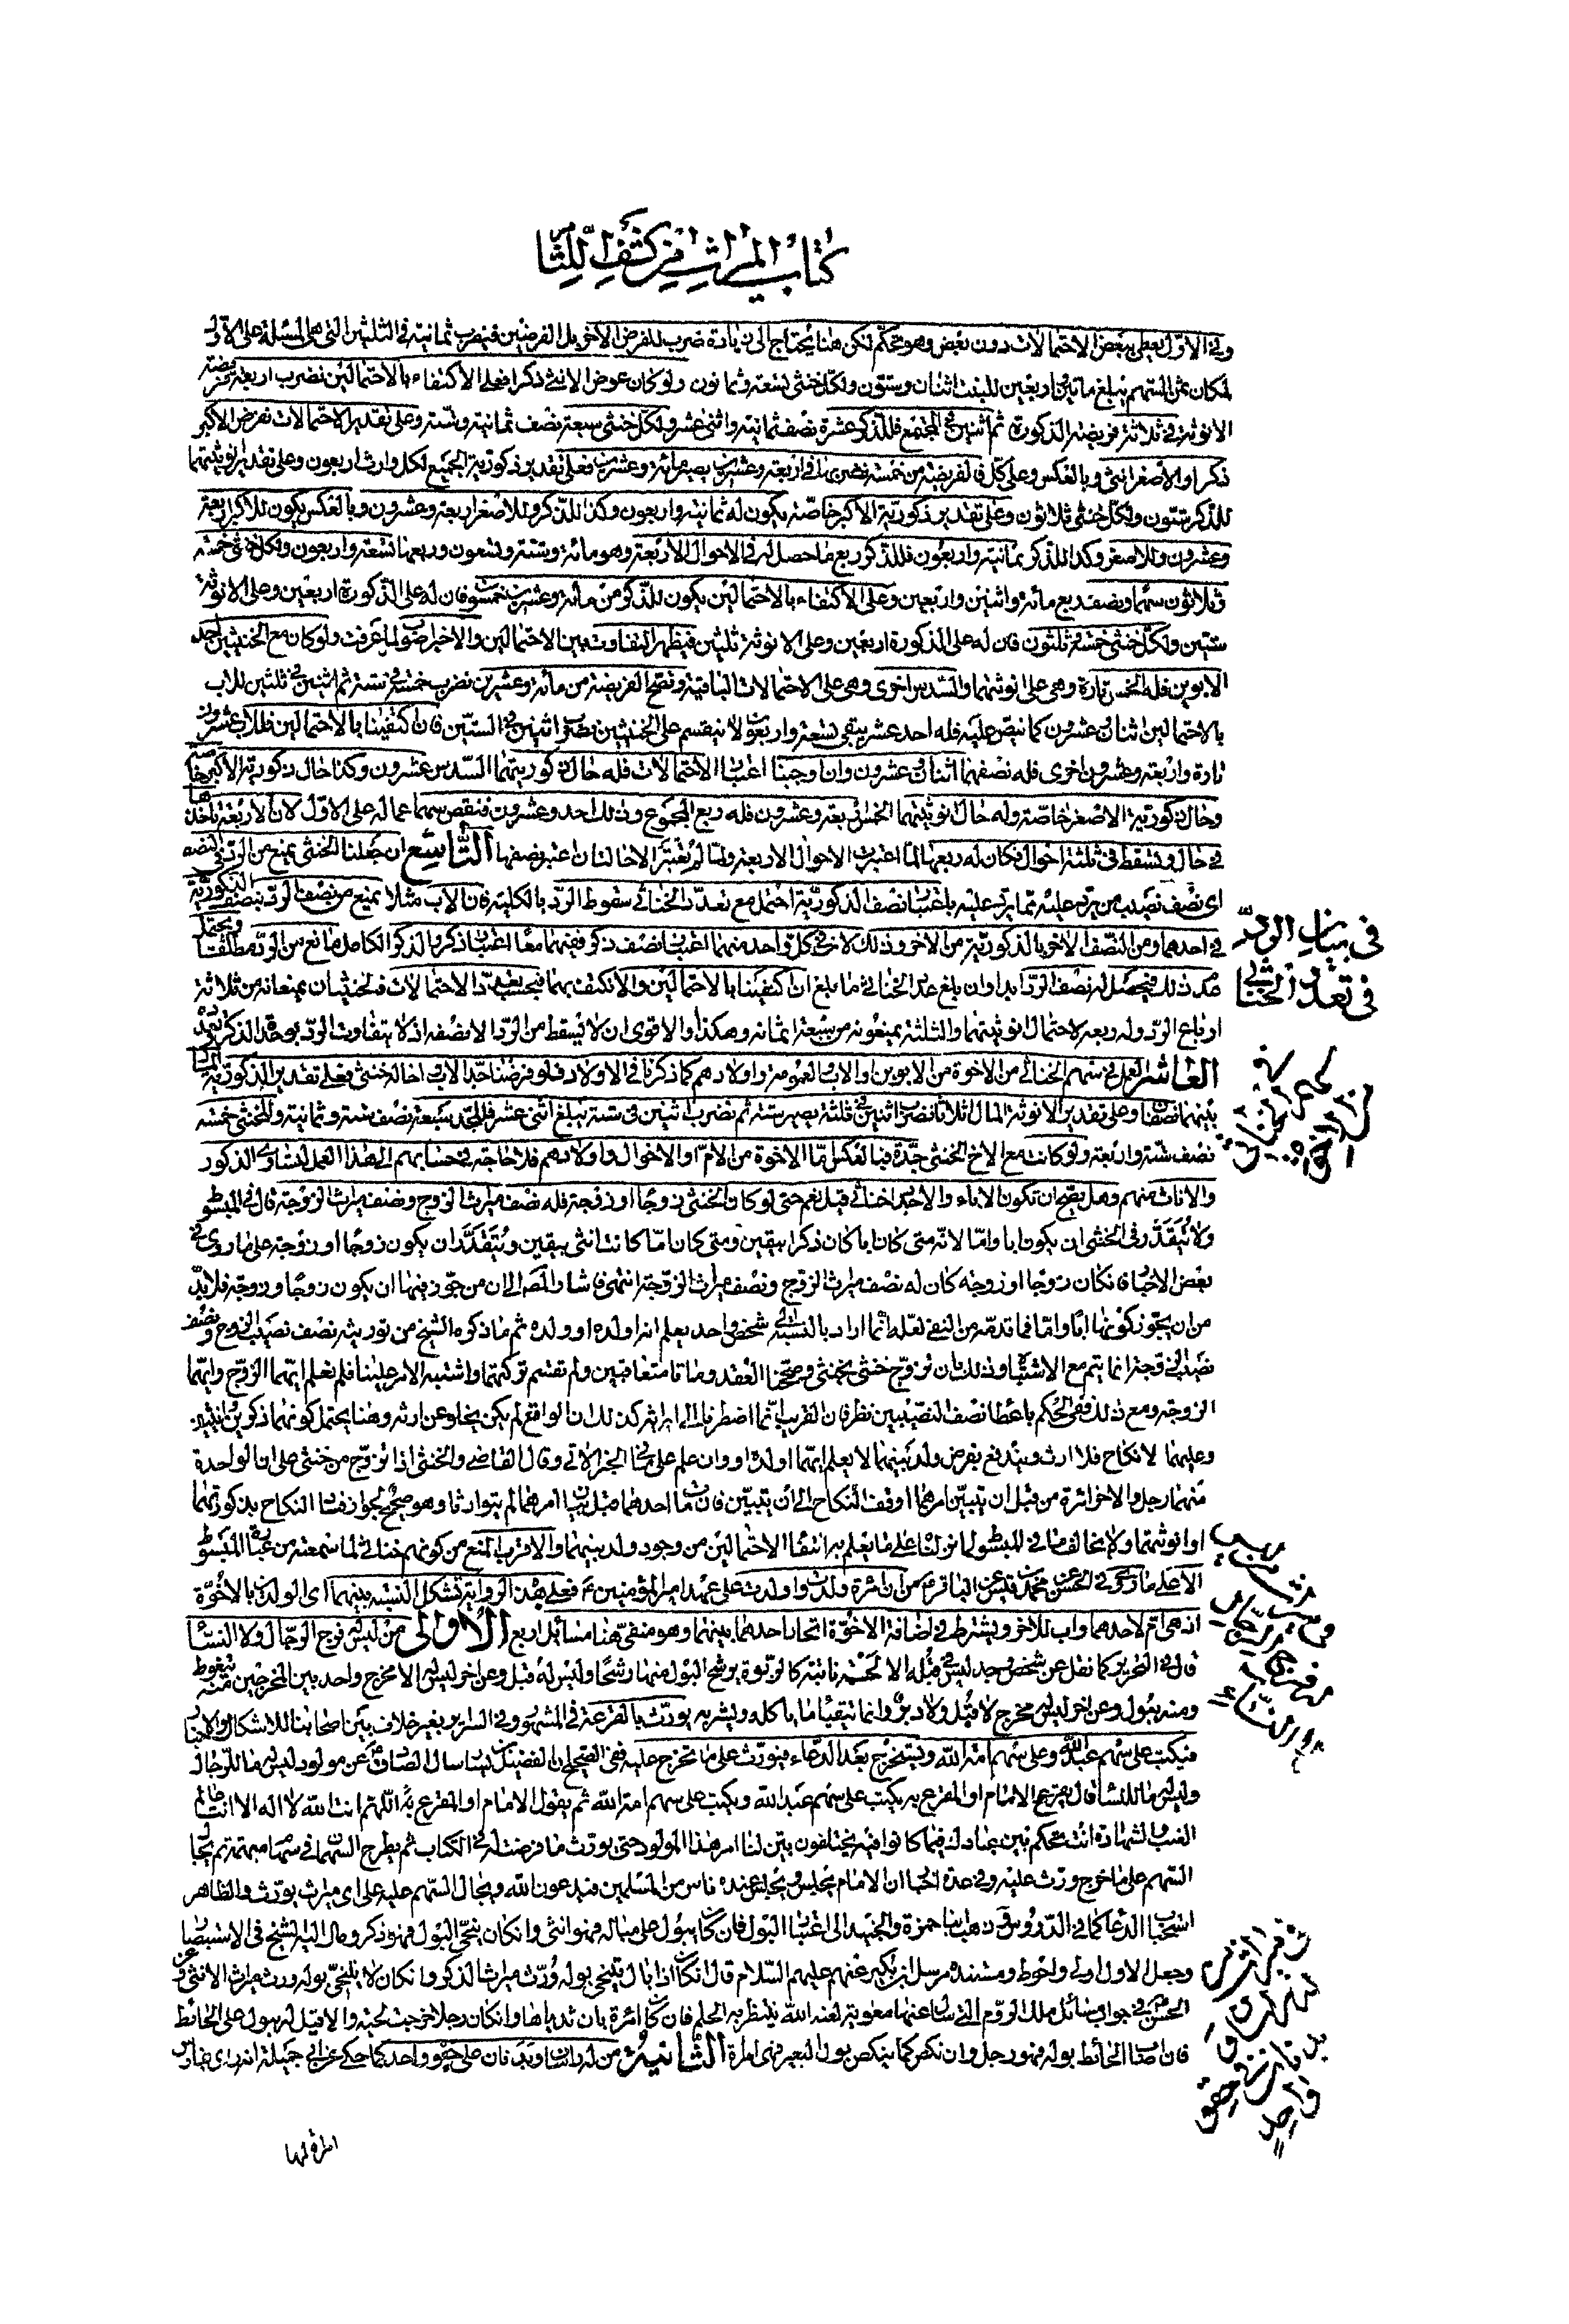 كتاب الميراث من كشف اللثام
وفى الاوّل يعطى ببعض الاحتمالات دون بعض وهو تحكّم لكن هنا يحتاج الى زيادة ضرب للفرض الاخر بل الفرضين فنضرب ثمانية فى الثلثين التى هى المسئلة على الاوّل
لمكان ثمن السهم يبلغ مأتين واربعين للبنت اثنان وستّون ولكلّ خنثى تسعة وثمانون ولو كان عوض الانثى ذكرا فعلى الاكتفاء بالاحتمالين نضرب اربعة فريضة
الانوثية فى ثلاثة فريضة الذكورة ثم اثنين فى المجتمع فللذكر عشرة نصف ثمانية واثنى عشر ولكل خنثى سبعة نصف ثمانية وستّة وعلى تقدير الاحتمالات نفرض الاكبر
ذكرا والاصغر انثى وبالعكس وعلى كلّ فالفريضة من خمسة نضربها فى اربعة وعشرين يصير مائة وعشرين فعلى تقدير ذكورية الجميع لكل وارث اربعون وعلى تقدير انوثيتهما
للذكر ستّون ولكلّ خنثى ثلاثون وعلى تقدير ذكوريّة الاكبر خاصّة يكون له ثمانية واربعون وكذا للذكر وللاصغر اربعة وعشرون وبالعكس يكون للاكبر اربعة
وعشرون وللاصغر وكذا للذكر ثمانية واربعون فللذكر ربع ما حصل له فى الاحوال الاربعة وهو مائة وستة وتسعون وربعها تسعة واربعون ولكل خنثى خمسة
وثلاثون سهما ونصف ربع مائة واثنين واربعين وعلى الاكتفاء بالاحتمالين يكون للذكر من مائة وعشرين خمسون فان له على الذكورة اربعين وعلى الانوثة
ستين ولكل خنثى خمسة وثلثون فان له على الذكورة اربعين وعلى الانوثة ثلثين فيظهر التفاوت بين الاحتمالين والاخير اصوب لما عرفت ولو كان مع الخنثيين احد
الابوين فله الخمس تارة وهى على انوثتهما والسدس اخرى وهى على الاحتمالات الباقية وتصح الفريضة من مائة وعشرين نضرب خمسة فى ستة ثم اثنين فى ثلثين للاب
بالاحتمالين اثنان وعشرون كما نيص عليه فله احد عشر يبقى تسعة واربعون لا ينقسم على الخنثيين نضرب اثنين فى الستّين فان اكتفينا بالاحتمالين فللاب عشرون
تارة واربعة وعشرون اخرى فله نصفهما اثنان وعشرون وان اوجبنا اعتبار الاحتمالات فله حال ذكوريتهما السّدس عشرون وكذا حال ذكورية الاكبر خاصة
وحال ذكوريّة الاصغر خاصّة وله حال انوثيتهما الخمس اربعة وعشرون فله ربع المجموع وذلك احد وعشرون فنقص سهما عما له على الاول لان الاربعة تأخذها
فى حال وتسقط فى ثلثة احوال فكان له ربعها لما اعتبرت الاحوال الاربعة ولما لم تعتبر الا حالتان اعتبر نصفها التاسع ان جعلنا الخنثى يمنع من الردّ فى النصف
اى نصف نصيب من يردّ عليه مما يردّ عليه باعتبار نصف الذكوريّة احتمل مع تعدّد الخناثى سقوط الردّ بالكلية فان الاب مثلا يمنع من نصف الردّ بنصف الذكوريّة
فى احدهما ومن النّصف الاخر بالذكوريّة من الاخر وذلك لان فى كلّ واحد منهما اعتبار نصف ذكر ففيهما معا اعتبار ذكر والذكر الكامل مانع من الردّ مطلقا ويحتمل
عدم ذلك فيحصل له نصف الردّ ابدا وان بلغ عدد الخناثى ما بلغ ان اكتفينا بالاحتمالين والا نكتف بهما فبحسب تعدّد الاحتمالات فالخنثيان يمنعانه من ثلاثة
ارباع الردّ وله ربعه لاحتمال انوثيتهما والثلثة يمنعونه من سبعة اثمانه وهكذا والاقوى ان لا يسقط من الردّ الا نصفه اذ لا يتفاوت الردّ بوحدة الذكر وتعدده
العاشر العمل فى سهم الخناثى من الاخوة من الابوين والاب والعمومة واولادهم كما ذكرنا فى الاولاد فلو فرضنا جدّا لاب واخا له خنثى فعلى تقدير الذكورية المال
بينهما نصفان وعلى تقدير الانوثة المال اثلاثا نضرب اثنين فى ثلثة يصير ستة ثم نضرب اثنين فى ستة يبلغ اثنى عشر فللجدّ سبعة نصف ستة وثمانية وللخنثى خمسة
نصف ستّة واربعة ولو كانت مع الاخ الخنثى جدّة فبالعكس امّا الاخوة من الامّ او الاخوال واولادهم فلا حاجة فى حسابهم الى هذا العمل لتساوى الذكور
والاناث منهم وهل يصح ان تكون الاباء والاجداد خناثى قيل نعم حتى لو كان الخنثى زوجا او زوجة فله نصف ميراث الزوج ونصف ميراث الزوجة قال فى المبسوط
ولا يتقدّر فى الخنثى ان يكون ابا وامّا لانه متى كان ابا كان ذكرا بيقين ومتى كان امّا كانت انثى بيقين ويتقدّر ان يكون زوجا او زوجة على ما روى فى
بعض الاخبار فان كان زوجا او زوجة كان له نصف ميراث الزوج ونصف ميراث الزوجة انتهى فاشار المص الى ان من جوّز فيها ان يكون زوجا وزوجة فلا بدّ
من ان يجوّز كونها ابا وامّا فما قدمه من النفى لعله انما اراد بالنسبة الى شخص واحد يعلم انه اولده او ولده ثم ما ذكره الشيخ من توريثه نصف نصيب الزوج ونصف
نصيب الزوجة انما يتم مع الاشتباه وذلك بان تزوّج خنثى بخنثى وصحّحنا العقد وماتا متعاقبين ولم تقسم تركتهما واشتبه الامر علينا فلم نعلم ايهما الزوج وايهما
الزوجة ومع ذلك ففى الحكم باعطاء نصف النصيبين نظر فان القريب انما اضطررنا الى ايراثه كذلك اذ الواقع لم يكن يخلو عن ارثه وهنا يحتمل كونهما ذكرين وانثيين
وعليهما لا نكاح فلا ارث ويندفع بفرض ولد بينهما لا يعلم ايهما اولده او وان علم على ما فى الخبر الاتى وقال القاضى والخنثى اذا تزوّج من خنثى على ان الواحدة
منهما رجل والاخر امرة من قبل ان تبين امرهما اوقف النكاح الى ان يتبيّن فان مات احدهما قبل بيان امرهما لم يتوارثا وهو صحيح لجواز فساد النكاح بذكورتهما
او انوثتهما ولا يخالف ما فى المبسوط لما نزلناه على ما يعلم به انتفاء الاحتمالين من وجود ولد بينهما والاقرب المنع من كونهم خناثى لما سمعته من عبارة المبسوط
الا على ما روى فى الحسن عن محمد بن قيس عن الباقر ع من ان امرة ولدت واولدت على عهد امير المؤمنين ع فعلى هذه الرواية تشكل النسبة بينهما اى الولدين بالاخوّة
اذ هى ام لاحدهما واب للاخر ويشترط فى اضافة الاخوّة اتحاد احدهما بينهما وهو منفى هنا مسائل اربع الاولى من ليس له فرج الرجال ولا النساء
قال فى التحرير كما نقل عن شخص وجد ليس فى قبله الا لحمة ناتئة كالربوة يرشح البول منها رشحا وليس له قبل وعن اخر ليس له الا مخرج واحد بين المخرجين منه يتغوط
ومنه يبول وعن اخر ليس له مخرج لا قبل ولا دبر وانما يتقيأ ما ياكله ويشربه يورّث بالقرعة فى المشهور وفى السرائر بغير خلاف بين اصحابنا للاشكال والاخبار
فيكتب على سهم عبد اللّه وعلى سهم امة اللّه ويستخرج بعد الدعاء فيورّث على ما تخرج عليه ففى الصحيح ان الفضيل بن يسار سأل الصادق ع عن مولود ليس له ما للرجال
وليس له ما للنساء قال يقرع الامام او المقرع به يكتب على سهم عبد اللّه ويكتب على سهم امة اللّه ثم يقول الامام او المقرع به اللّهم انت اللّه لا اله الا انت عالم
الغيب والشهادة انت تحكم بين عبادك فيما كانوا فيه يختلفون بيّن لنا امر هذا المولود حتى يورّث ما فرضت له فى الكتاب ثم يطرح السهمان فى سهام مبهمة ثم يجال
السهم على ما خرج ورّث عليه وفى عدة اخبار ان الامام يجلس ويجلس عنده ناس من المسلمين فيدعون اللّه ويجال السهم عليه على اى ميراث يورّث والظاهر
استحباب الدعاء كما فى الدروس وقد ذهب ابنا حمزة والجنيد الى اعتبار البول فان كان يبول على مباله فهو انثى وان كان ينحّى البول فهو ذكر ومال اليه الشيخ فى الاستبصار
وجعل الاول اولى واحوط ومستنده مرسل ابن بكير عنهم عليهم السّلام قال ان كان اذا بال يتنحى بوله ورّث ميراث الذكر وان كان لا يتنحّى بوله ورث ميراث الانثى وعن
الحسن ع فى جواب مسائل ملك الروم التى سال عنها معوية لعنه اللّه ينتظر به الحلم فان كان امرة بان ثدياها وان كان رجلا خرجت لحيته والا قيل له يبول على الحائط
فان اصاب الحائط بوله فهو رجل وان نكص كما ينكص بول البعير فهى امرة الثانية من له راسان او بدنان على حقو واحد كما حكى عن ابى جميلة انه راى بفارس
امرة لها
فى بيان الردّ
فى تعدد الخناثى